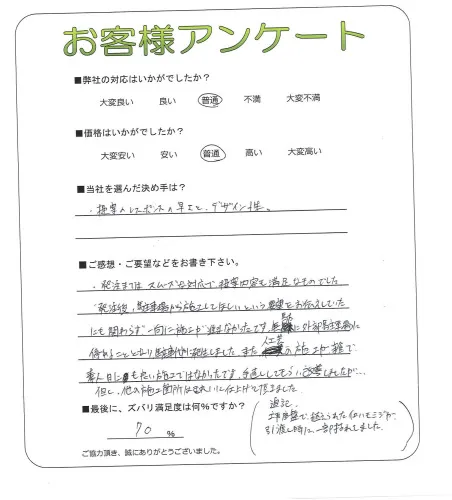 お客様アンケート
■弊社の対応はいかがでしたか？
大変良い 良い 普通 不満 大変不満
■価格はいかがでしたか？
大変安い 安い 普通 高い 大変高い
■当社を選んだ決め手は？
・提案のレスポンスの早さと、デザイン性。
■ご感想・ご要望などをお書き下さい。
・発注まではスムーズな対応で、提案内容も満足なものでした
発注後、駐車場から施工してほしいという要望をお伝えしていた
にも関わらず一向に施工が進まなかったです。 に外部駐車場に
停めることとなり駐車代が発生しました。また 人工芝の施工が雑で
素人目に も ではなかったです。手直ししてもらい改善しましたが…
但し、他の施工箇所はきれいに仕上げて頂きました。
■最後に、ズバリ満足度は何％ですか？
70 ％
追記
工事 で植えられたイロハモミジが、
引渡し時に、一部折れてました。
ご協力頂き、誠にありがとうございました。